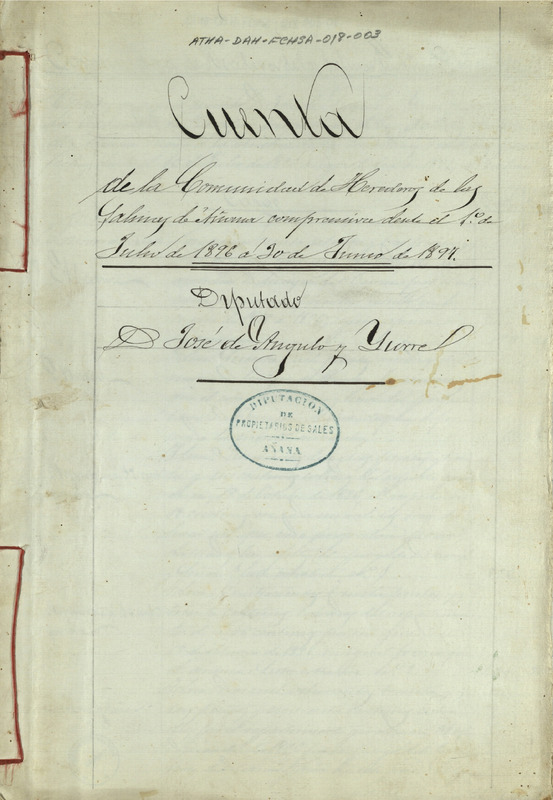 ATHA-DAH-FCHSA-018-003
Cuenta
de la Comunidad de Herederos de las
Salinas de Añana comprensiva desde el 1.º de
Julio de 1896 á 30 de Junio de 1897.
Diputado
D José de Angulo y Yurre
DIPUTACION
DE
PROPIETARIOS DE SALES
AÑANA